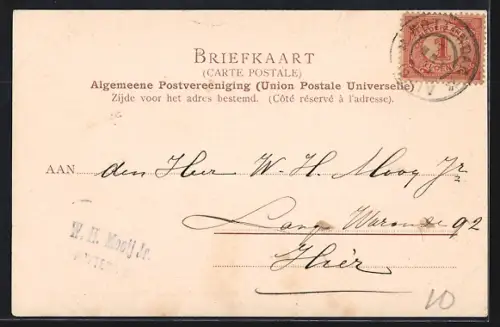 BRIEFKAART
(CARTE POSTALE)
Algemeene Postvereeniging (Union Postale Universelle)
Zijde voor het adres bestemd. (Côté réservé à l'adresse).
1
AAN den Heer W. H. Mooy Jr
W. H. Mooij Jr.
Lang 92
Hier
10